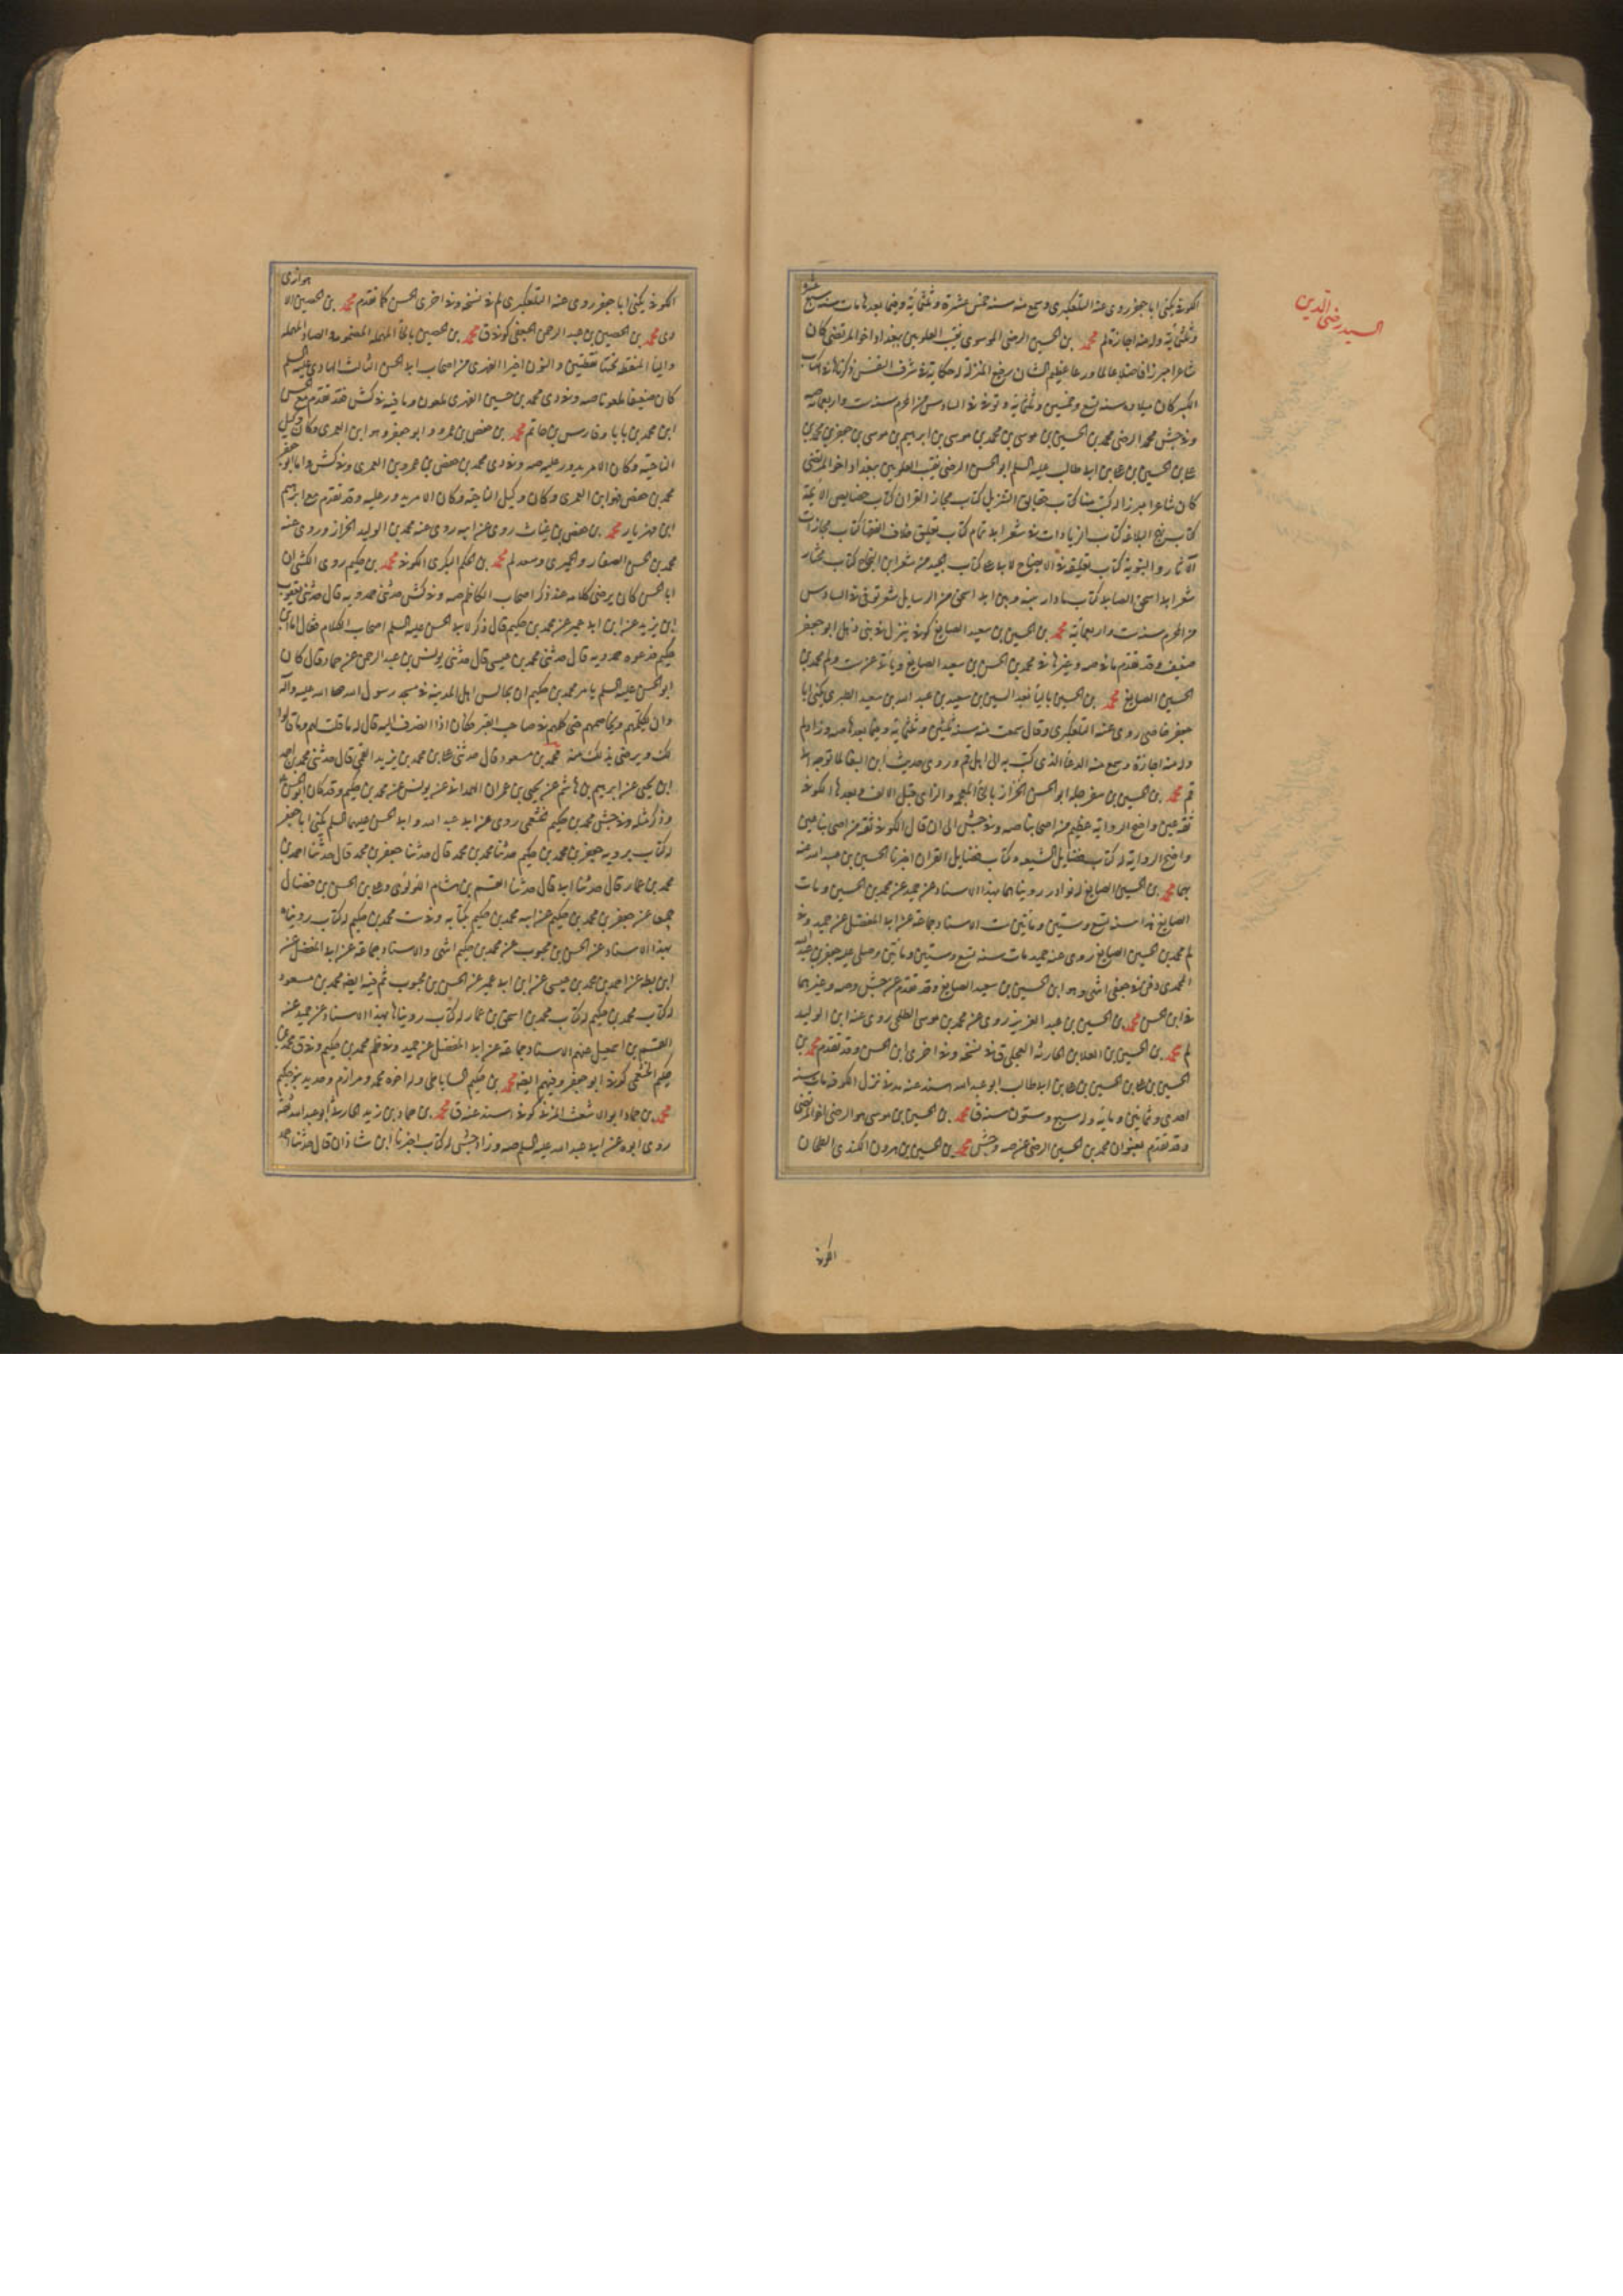 السيد رضى الدين
عشره
الكوفى يكنى ابا جعفر روى عنه التلعكبرى وسمع منه سنة خمس عشرة وثلثمائة وفيما بعدها مات سنة سبع
وثلثمائة وله منه اجازة لم محمد بن الحسين الرضى الموسوى نقيب العلويين ببغداد اخو المرتضى كان
شاعرا مبرزا فاضلا عالما ورعا عظيم الشان رفيع المنزلة له حكاية فى شرف النفس ذكرناها فى الكتاب
الكبير كان ميلاده سنة تسع وخمسين وثلثمائة وتوفى فى السادس من المحرم سنة ست واربعمائة صه
وفى جش محمد الرضى محمد بن الحسين بن موسى بن محمد بن موسى بن ابراهيم بن موسى بن جعفر بن محمد بن
على بن الحسين بن على بن ابى طالب عليه السلم ابو الحسن الرضى نقيب العلويين ببغداد اخو المرتضى
كان شاعرا مبرزا له كتب منها كتاب حقايق التنزيل كتاب مجاز القران كتاب خصايص الائمة
كتاب نهج البلاغة كتاب الزيادات فى شعر ابى تمام كتاب تعليق خلاف الفقها كتاب مجازات
الآثار النبوية كتاب تعليقة فى الايضاح لابى على كتاب الجيد من شعر ابن الحجاج كتاب مختار
شعر ابى اسحق الصابى كتاب ما دار بينه وبين ابى اسحق من الرسايل شعر توفى فى السادس
من المحرم سنة ست واربعمائة محمد بن الحسين بن سعيد الصايغ كوفى ينزل فى بنى ذهل ابو جعفر
ضعيف وقد تقدم ما فى صه وغيرها فى محمد بن الحسن بن سعيد الصايغ وياتى عن ست ولم محمد بن
الحسين الصايغ محمد بن الحسين باليا بعد السين بن سعيد بن عبد الله بن سعيد الطبرى يكنى ابا
جعفر خاصى روى عنه التلعكبرى وقال سمعت منه سنة ثلثين وثلثمائة وفيما بعدها صه وزاد لم
وله منه اجازة وسمع منه الدعا الذى كتب به الى اهل قم وروى حديث ابن البقال لما توجه الى
قم محمد بن الحسين بن سفرجلة ابو الحسن الخزاز بالخا المعجمه والزاى قبل الالف وبعدها الكوفى
ثقة عين واضح الرواية عظيم من اصحابنا صه وفى جش الى ان قال الكوفى ثقة من اصحابنا عين
واضح الرواية له كتاب فضايل الشيعه وكتاب فضايل القران اخبرنا الحسين بن عبد الله عنه
بهما محمد بن الحسين الصايغ له نوادر رويناهما بهذا الاسناد عن حميد عن محمد بن الحسين ومات
الصايغ هذا سنة تسع وستين ومأتين ست الاسناد جماعة عن ابى المفضل عن حميد وفى
لم محمد بن الحسين الصايغ روى عنه حميد مات سنة تسع وستين ومأتين وصلى عليه جعفر بن عبد الله
المحمدى دفن فى جعفى انتهى وهو ابن الحسين بن سعيد الصايغ وقد تقدم عن جش وصه وغيرهما
فى ابن الحسن محمد بن الحسين بن عبد العزيز روى عنه محمد بن موسى الطلحى روى عنه ابن الوليد
لم محمد بن الحسين بن العلا بن الحارث العجلى ق فى نسخة وفى اخرى ابن الحسن وقد تقدم محمد بن
الحسين بن على بن الحسين بن على بن ابى طالب ابو عبد الله اسند عنه مدنى نزل الكوفة مات سنة
احدى وثمانين ومائة وله سبع وستون سنة ق محمد بن الحسين بن موسى هو الرضى اخو المرتضى
وقد تقدم بعنوان محمد بن الحسين الرضى عن صه وجش محمد بن الحسين بن هرون الكندى الطحان
الكوفى
هوازى
الكوفى يكنى ابا جعفر روى عنه التلعكبرى لم فى نسخة وفى اخرى الحسن كما تقدم محمد بن الحصين الا
دى محمد بن الحصين بن عبد الرحمن الجعفى كوفى ق محمد بن حصين بالحاء المهملة المضمومة والصاد المهملة
والياء المنقطة تحتها نقطتين والنون اخيرا الفهرى من اصحاب ابى الحسن الثالث الهادى عليه السلم
كان ضعيفا ملعونا صه وفى دى محمد بن حصين الفهرى ملعون وما فيه فى كش فقد تقدم مع الحسن
ابن محمد بن بابا وفارس بن حاتم محمد بن حفص بن عمرو ابو جعفر وهو ابن العمرى وكان وكيل
الناحية وكان الامر يدور عليه صه وفى دى محمد بن حفص بن عمرو بن العمرى وفى كش واما ابو جعفر
محمد بن حفص فهو ابن العمرى وكان وكيل الناحية وكان الامر يدور عليه وقد تقدم مع ابراهيم
ابن مهزيار محمد بن حفص بن غياث روى عن ابيه روى عنه محمد بن الوليد الخزاز وروى عنه
محمد بن الحسن الصفار والحميرى وسعد لم محمد بن الحكم البكرى الكوفى محمد بن حكيم روى الكشى ان
ابا الحسن كان يرضى كلامه عند ذكر اصحاب الكاظم صه وفى كش حدثنى حمدويه قال حدثنى يعقوب
ابن يزيد عن ابن ابى عمير عن محمد بن حكيم قال ذكر لابى الحسن عليه السلم اصحاب الكلام فقال اما ابن
حكيم فدعوه حمدويه قال حدثنى محمد بن عيسى قال حدثنى يونس بن عبد الرحمن عن حماد قال كان
ابو الحسن عليه السلم يامر محمد بن حكيم ان يجالس اهل المدينة فى مسجد رسول الله صلى الله عليه وآله
وان يكلمهم ويخاصمهم حتى كلمهم فى صاحب القبر فكان اذا انصرف اليه قال له ما قلت لهم وما قالوا
لك ويرضى بذلك منه محمد بن مسعود قال حدثنى على بن محمد بن يزيد القمى قال حدثنى محمد بن احمد
ابن يحيى عن ابراهيم بن هاشم عن يحيى بن عمران الهمدانى عن يونس عن محمد بن حكيم وقد كان ابو الحسن
وذكر مثله وفى جش محمد بن حكيم خثعمى روى عن ابى عبد الله وابى الحسن عليهما السلم يكنى ابا جعفر
له كتاب يرويه جعفر بن محمد بن حكيم حدثنا محمد بن محمد قال حدثنا جعفر بن محمد قال حدثنا احمد بن
محمد بن عمار قال حدثنا ابى قال حدثنا القسم بن هشام اللؤلؤى وعلى بن الحسن بن فضال
جميعا عن جعفر بن محمد بن حكيم عن ابيه محمد بن حكيم بكتابه وفى ست محمد بن حكيم له كتاب رويناه
بهذا الاسناد عن الحسن بن محبوب عن محمد بن حكيم انتهى والاسناد جماعة عن ابى المفضل عن
ابن بطة عن احمد بن محمد بن عيسى عن ابن ابى عمير عن الحسن بن محبوب ثم فيه ايضا محمد بن مسعود
له كتاب محمد بن حكيم له كتاب محمد بن اسحق بن عمار له كتاب رويناها بهذا الاسناد عن حميد عنه
القسم بن اسمعيل عنهم الاسناد جماعة عن ابى المفضل عن حميد وفى ظم محمد بن حكيم وفى ق محمد بن
حكيم الخثعمى كوفى ابو جعفر وفيهم ايضا محمد بن حكيم الساباطى وله اخوه محمد ومرازم وحديد بنو حكيم
محمد بن حماد ابو الاشعث المزنى كوفى اسند عنه ق محمد بن حماد بن زيد الحارثى ابو عبد الله ثقة
روى ابوه عن ابى عبد الله عليه السلم صه وزاد جش له كتاب اخبرنا ابن شاذان قال حدثنا احمد